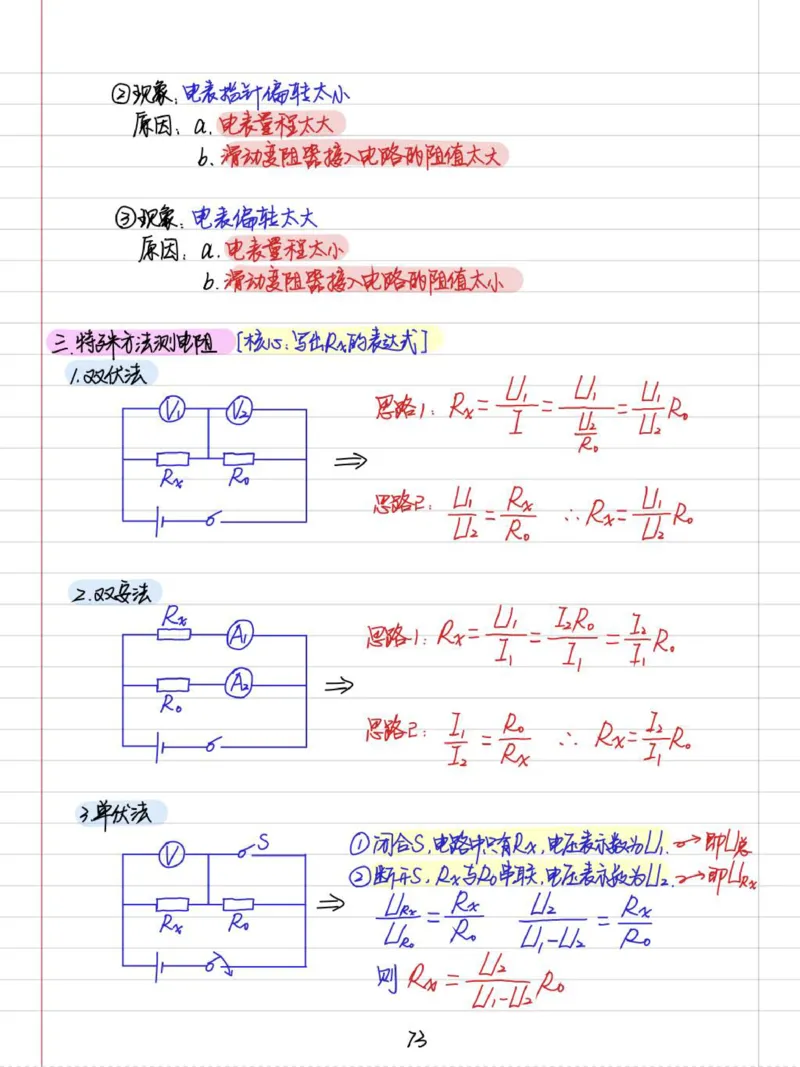 ②现象:电表指针偏转太小
原因:a.电表量程太大
b.滑动变阻器接入电路的阻值太大
③现象:电表偏转太大
原因:a.电表量程太小
b.滑动变阻器接入电路的阻值太小
三.特殊方法测电阻 [核心:写出Rx的表达式]
1.双伏法
V₁ V₂
Rx R₀
⇒
思路1: Rx = U₁/I = U₁/(U₂/R₀) = U₁/U₂ R₀
思路2: U₁/U₂ = Rx/R₀ ∴ Rx = U₁/U₂ R₀
2.双安法
Rx A₁
A₂
R₀
⇒
思路1: Rx = U₁/I₁ = I₂R₀/I₁ = I₂/I₁ R₀
思路2: I₁/I₂ = R₀/Rx ∴ Rx = I₂/I₁ R₀
3.单伏法
V S
Rx R₀
⇒
①闭合S,电路中只有Rx,电压表示数为U₁. →即U总
②断开S,Rx与R₀串联,电压表示数为U₂. →即URx
URx/UR₀ = Rx/R₀ U₂/(U₁-U₂) = Rx/R₀
则 Rx = U₂/(U₁-U₂) R₀
73